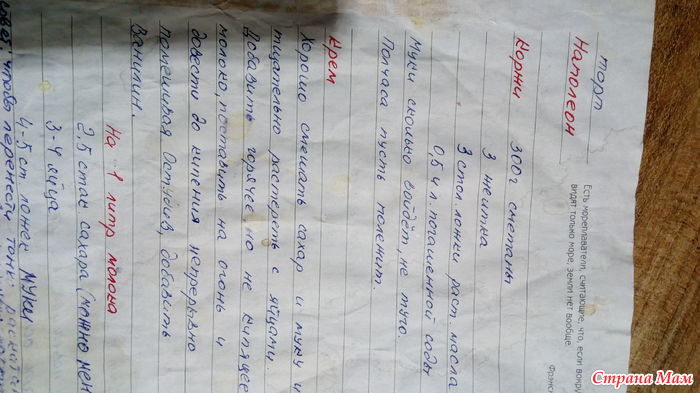 торт
Наполеон
Есть мореплаватели, считающие, что, если вокруг
видят только море, земли нет вообще.
Коржи 300г сметаны
3 желтка
3 стол ложки раст. масла
0,5 ч.л. погашенной соды
Муки сколько войдёт, не туго.
Полчаса пусть полежит.
Крем
Хорошо смешать сахар и муку и
тщательно растереть с яйцами.
Добавить горячее, но не кипящее
молоко, поставить на огонь и
довести до кипения непрерывно
помешивая. Остудив, добавить
Ванилин.
На 1 литр молока
2,5 стан. сахара (можно мен
3-4 яйца
4-5 ст. ложек муки
чтобы перенести тонк.
Страна Мам